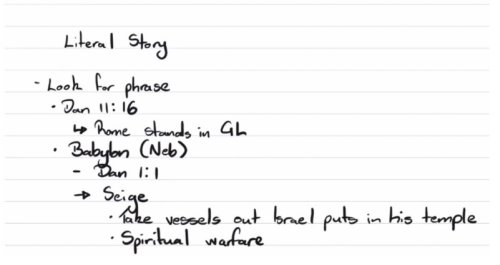 Literal Story
- Look for phrase
· Dan 11:16
↳ Rome stands in GL
· Babylon (Neb)
- Dan 1:1
→ Seige
· Take vessels out Israel puts in his temple
· Spiritual warfare